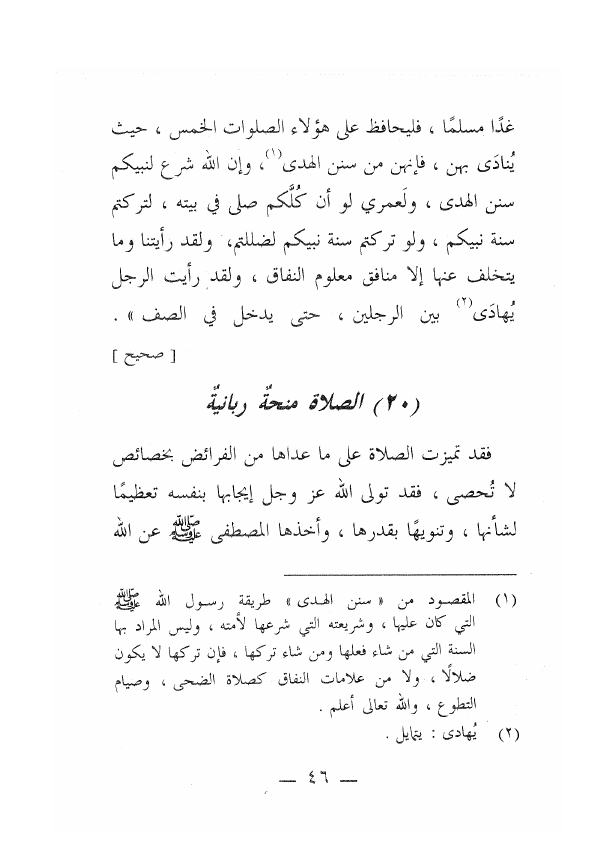 غدًا مسلمًا ، فليحافظ على هؤلاء الصلوات الخمس ، حيث
يُنادَى بهن ، فإنهن من سنن الهدى(١)، وإن الله شرع لنبيكم
سنن الهدى ، ولَعمري لو أن كُلَّكم صلى في بيته ، لتركتم
سنة نبيكم ، ولو تركتم سنة نبيكم لضللتم، ولقد رأيتنا وما
يتخلف عنها إلا منافق معلوم النفاق ، ولقد رأيت الرجل
يُهادَى(٢) بين الرجلين ، حتى يدخل في الصف » .
[ صحيح ]
(٢٠) الصلاة منحةٌ ربانيةٌ
فقد تميزت الصلاة على ما عداها من الفرائض بخصائص
لا تُحصى ، فقد تولى الله عز وجل إيجابها بنفسه تعظيمًا
لشأنها ، وتنويهًا بقدرها ، وأخذها المصطفى ﷺ عن الله
(١) المقصود من « سنن الهدى » طريقة رسول الله ﷺ
التي كان عليها ، وشريعته التي شرعها لأمته ، وليس المراد بها
السنة التي من شاء فعلها ومن شاء تركها ، فإن تركها لا يكون
ضلالًا ، ولا من علامات النفاق كصلاة الضحى ، وصيام
التطوع ، والله تعالى أعلم .
(٢) يُهادى : يتمايل .
— ٤٦ —